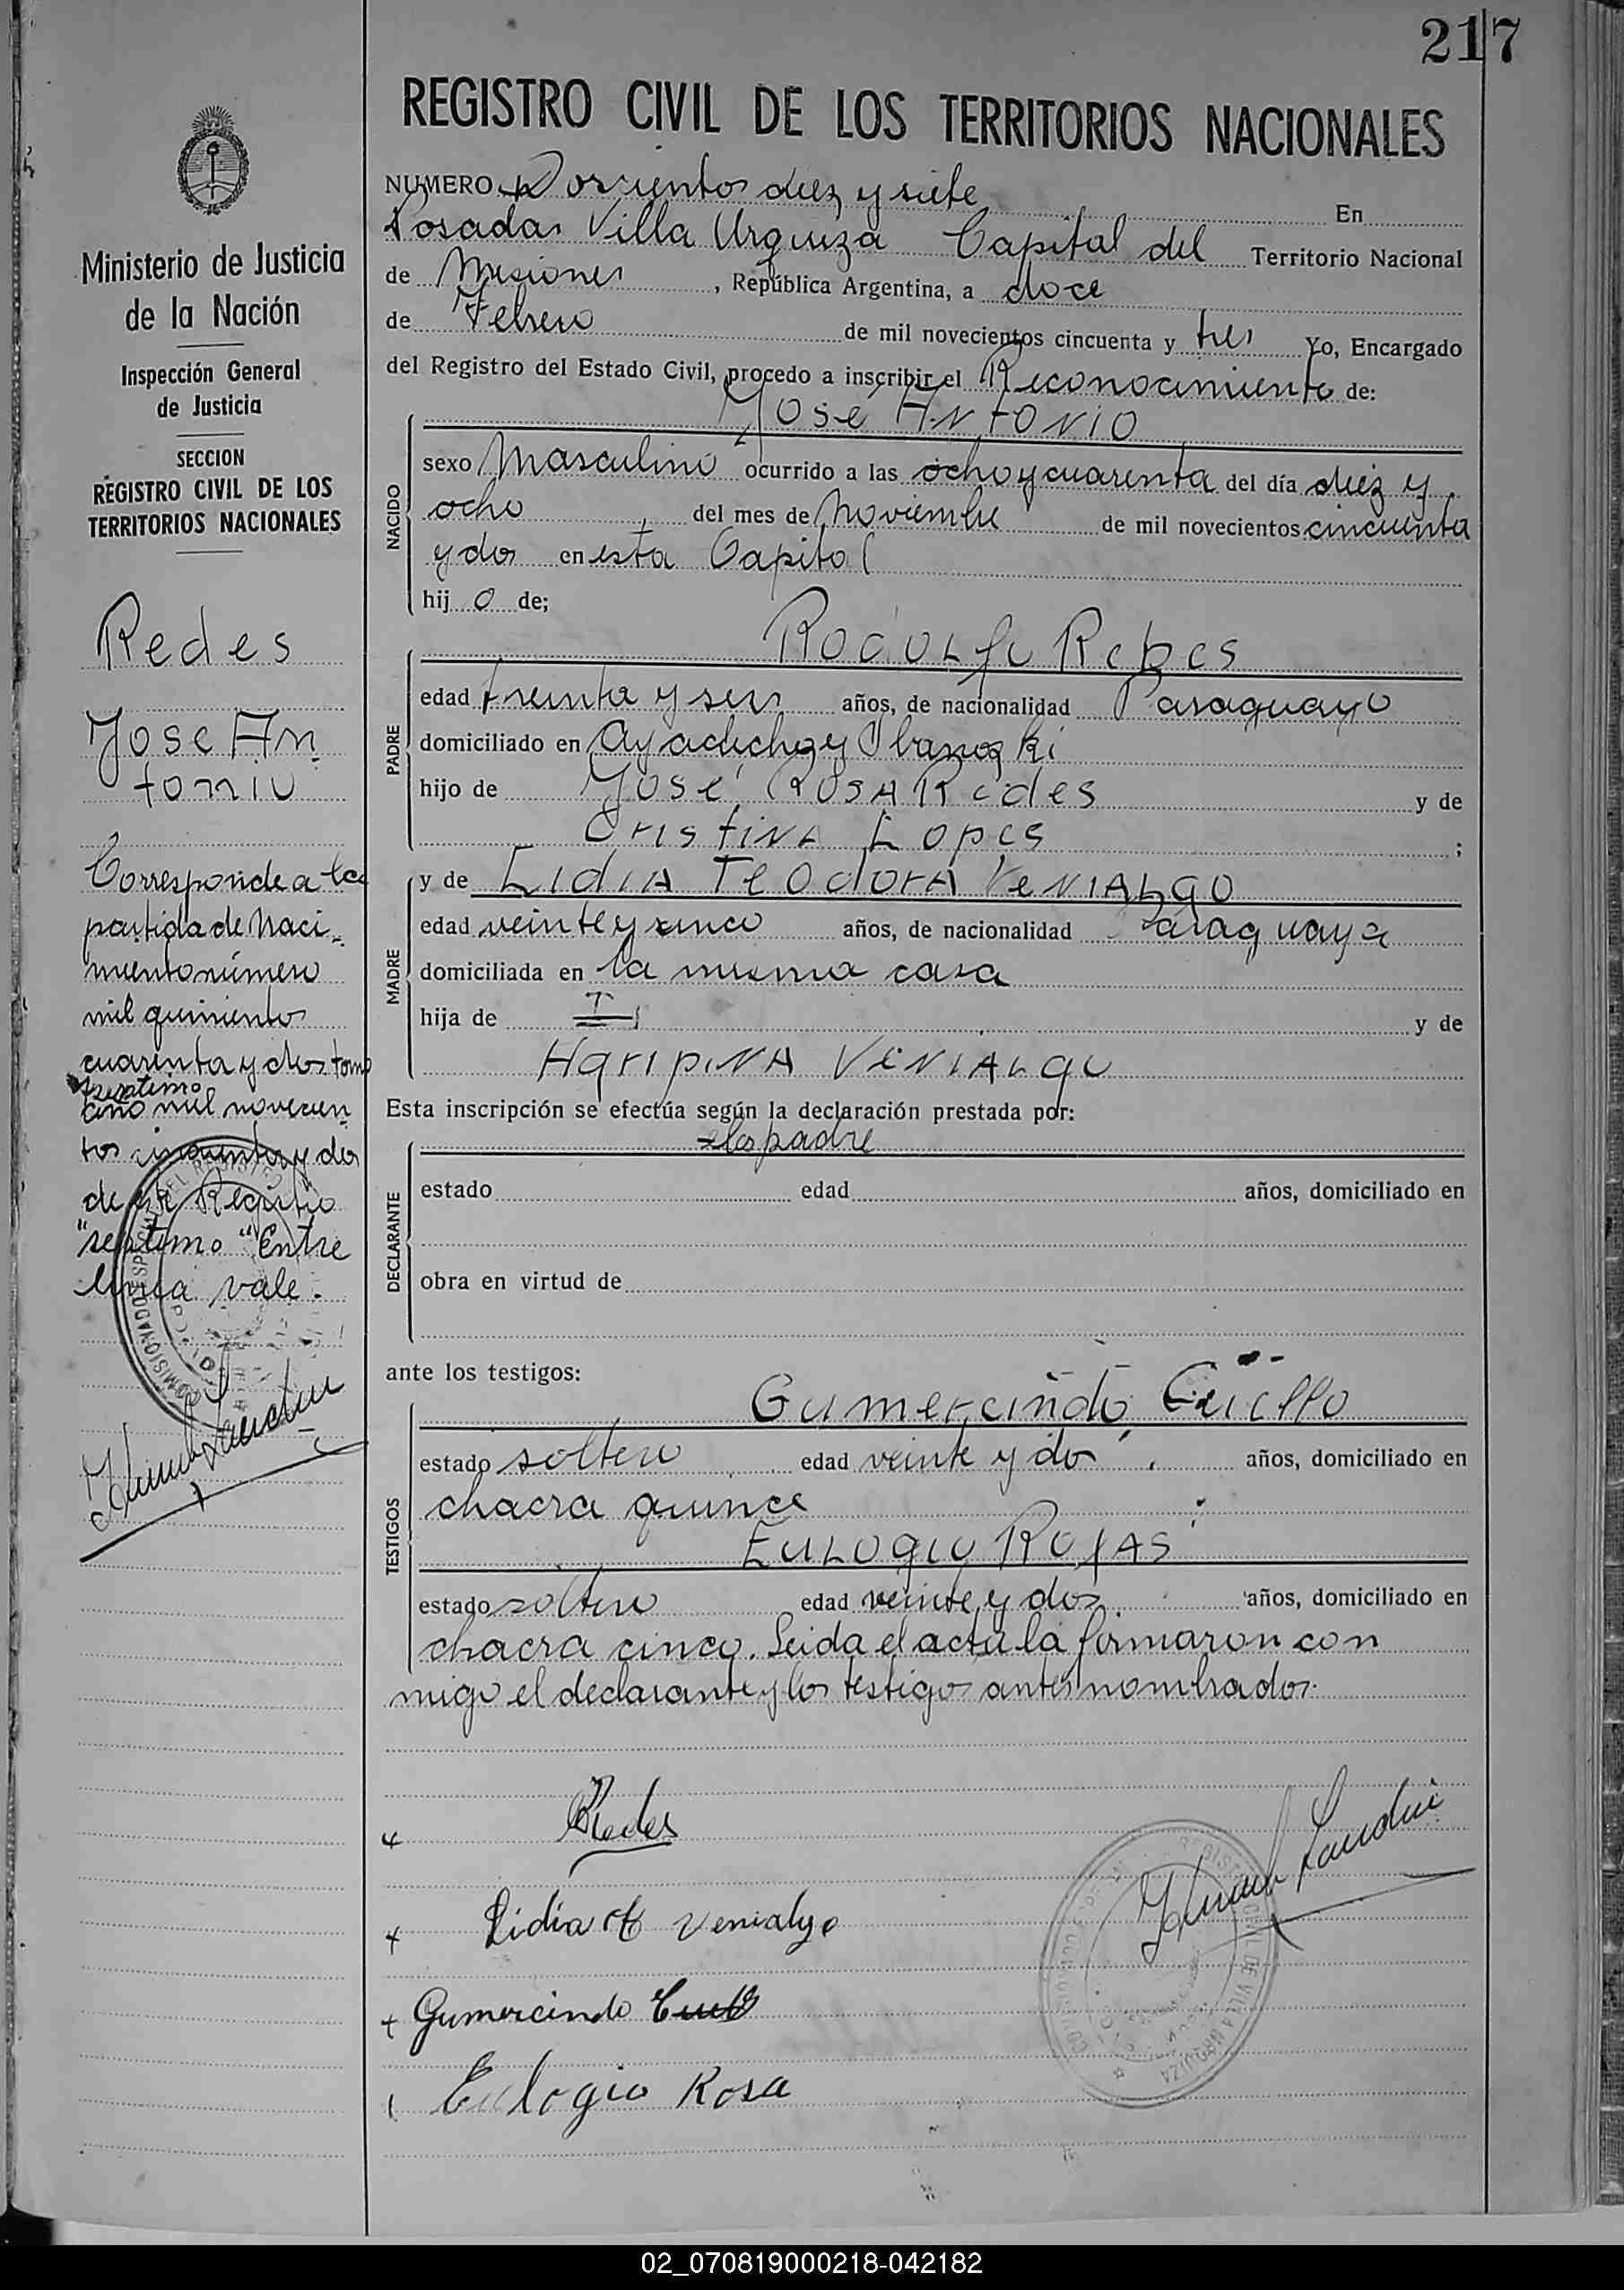 217
REGISTRO CIVIL DE LOS TERRITORIOS NACIONALES
Ministerio de Justicia
de la Nación
Inspección General
de Justicia
SECCION
REGISTRO CIVIL DE LOS
TERRITORIOS NACIONALES
Redes
Jose An
tonio
Corresponde a la
partida de Naci-
miento número
mil quiniento
cuarenta y dos tomo
septimo
año mil novecien
tos cincuenta y dos
de Registro
"septimo" Entre
linea vale.
NUMERO Doscientos diez y siete En
Posadas Villa Urquiza Capital del Territorio Nacional
de Misiones, República Argentina, a doce
de Febrero de mil novecientos cincuenta y tres Yo, Encargado
del Registro del Estado Civil, procedo a inscribir el Reconocimiento de:
José Antonio
NACIDO
sexo Masculino ocurrido a las ocho y cuarenta del día diez y
ocho del mes de Noviembre de mil novecientos cincuenta
y dos en esta Capital
hij o de;
Rodolfo Redes
PADRE
edad treinta y seis años, de nacionalidad Paraguayo
domiciliado en
hijo de José Rosa Redes y de
Cristina Lopes ;
MADRE
y de Lidia Teodora Venialgo
edad veinte y cinco años, de nacionalidad Paraguaya
domiciliada en la misma casa
hija de y de
Agripina Venialgo
Esta inscripción se efectúa según la declaración prestada por:
los padre
DECLARANTE
estado edad años, domiciliado en
obra en virtud de
ante los testigos:
Gumercindo
TESTIGOS
estado soltero edad veinte y dos años, domiciliado en
chacra quince
Eulogio Rojas
estado soltero edad veinte y dos años, domiciliado en
chacra cinco. Leida el acta la firmaron con
migo el declarante y los testigos antes nombrados.
Redes
Lidia T Venialgo
Gumercindo
Eulogio Rosa
02_070819000218-042182